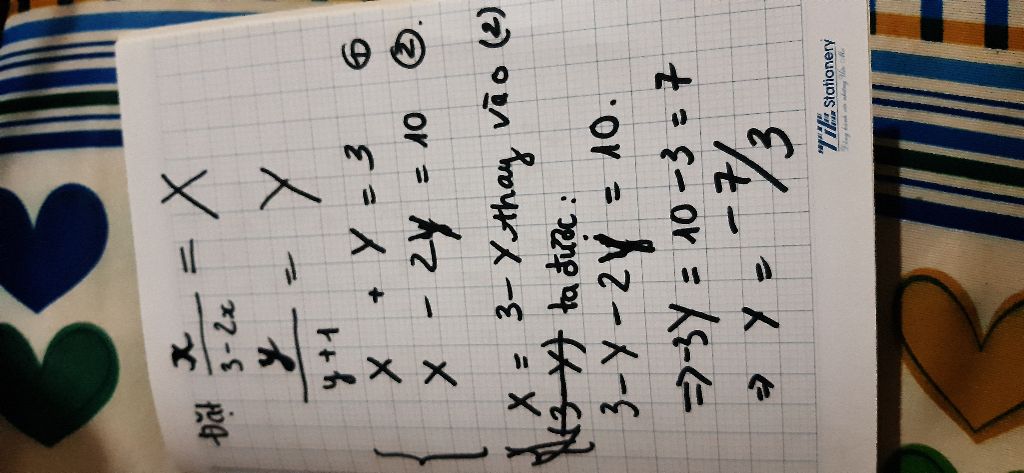 Đặt x/(3-2x) = X
y/(y+1) = Y
X + Y = 3 ①
X - 2Y = 10 ②.
X = 3 - Y thay vào (2)
(3-Y) ta được:
3 - Y - 2Y = 10.
=> -3Y = 10 - 3 = 7
=> Y = -7/3
Stationery